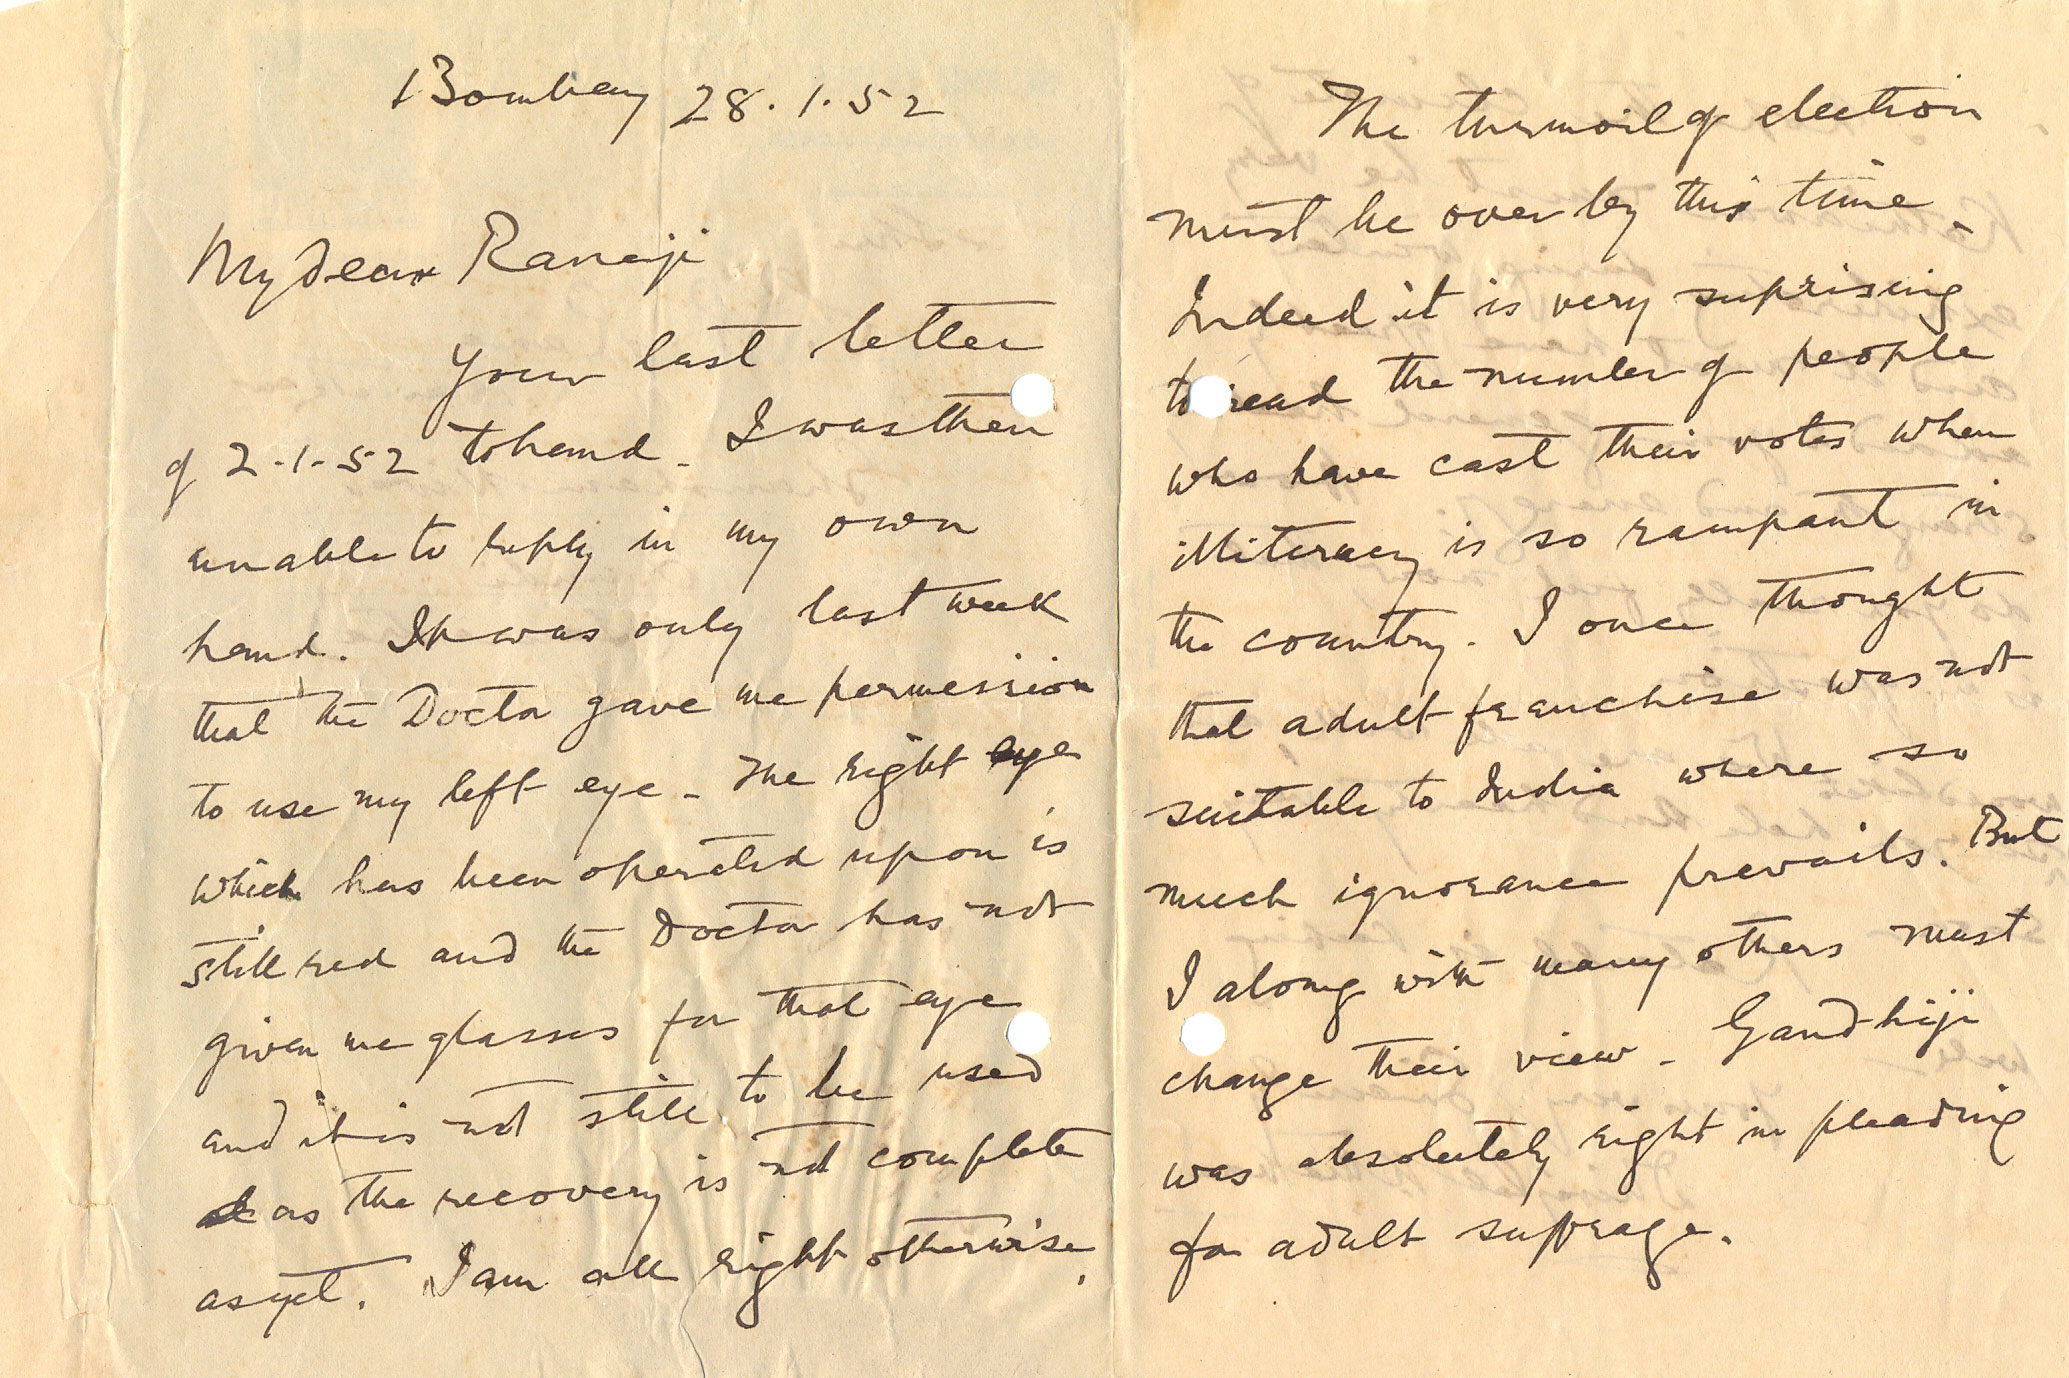 Bombay 28.1.52
My dear Raneiji
Your last letter
of 2-1-52 to hand. I was then
unable to reply in my own
hand. It was only last week
that the Doctor gave me permession
to use my left eye. The right eye
which has been operated upon is
still red and the Doctor has not
given me glasses for that eye
and it is not still to be used
as the recovery is not complete
as yet. I am all right otherwise.
The turmoil of election
must be over by this time.
Indeed it is very suprising
to read the number of people
who have cast their votes when
illiteracy is so rampant in
the country. I once thought
that adult franchise was not
suitable to India where so
much ignorance prevails. But
I along with many others must
change their view. Gandhiji
was absolutely right in pleading
for adult suffrage.